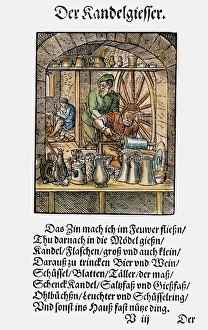 Der Kandelgiesser.
Das Zin mach ich im Feuwer fließn/
Thu darnach in die Mödel gießn/
Kandel/Flaschen/groß vnd auch klein/
Darauß zu trincken Bier vnd Wein/
Schüssel/Blatten/Täller/der maß/
Schenck Kandel/Saltzfaß vnd Gießfaß/
Ohlbüchßn/Leuchter vnd Schüsselring/
Vnd sonst ins Hauß fast nütze ding.
V iij Der